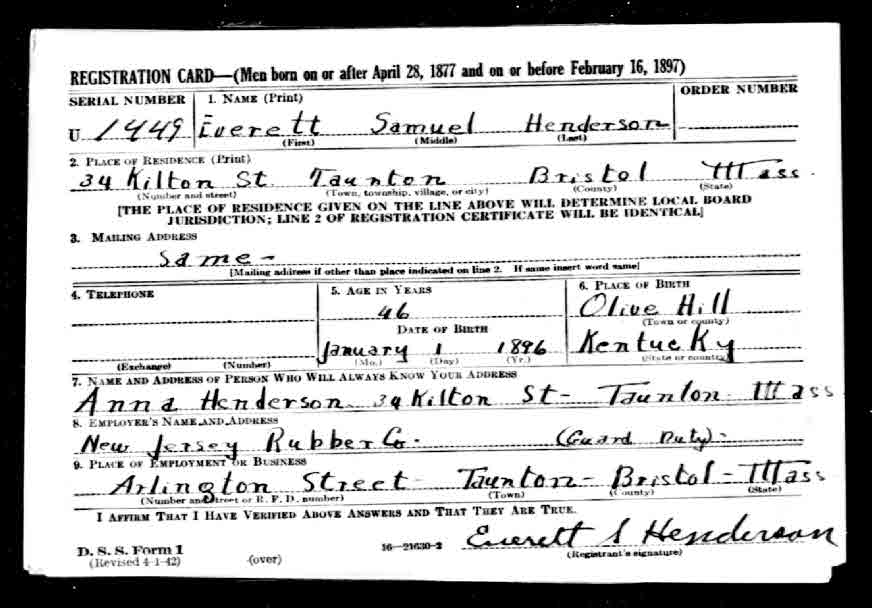 REGISTRATION CARD—(Men born on or after April 28, 1877 and on or before February 16, 1897)
SERIAL NUMBER 1. NAME (Print) ORDER NUMBER
U 1449 Everett Samuel Henderson
(First) (Middle) (Last)
2. PLACE OF RESIDENCE (Print)
34 Kilton St. Taunton Bristol Mass.
(Number and street) (Town, township, village, or city) (County) (State)
[THE PLACE OF RESIDENCE GIVEN ON THE LINE ABOVE WILL DETERMINE LOCAL BOARD
JURISDICTION; LINE 2 OF REGISTRATION CERTIFICATE WILL BE IDENTICAL]
3. MAILING ADDRESS
Same -
[Mailing address if other than place indicated on line 2. If same insert word same]
4. TELEPHONE 5. AGE IN YEARS 6. PLACE OF BIRTH
46 Olive Hill
(Town or county)
DATE OF BIRTH
January 1 1896 Kentucky
(Exchange) (Number) (Mo.) (Day) (Yr.) (State or country)
7. NAME AND ADDRESS OF PERSON WHO WILL ALWAYS KNOW YOUR ADDRESS
Anna Henderson 34 Kilton St - Taunton Mass
8. EMPLOYER'S NAME AND ADDRESS
New Jersey Rubber Co. (Guard Duty) -
9. PLACE OF EMPLOYMENT OR BUSINESS
Arlington Street - Taunton - Bristol - Mass
(Number and street or R. F. D. number) (Town) (County) (State)
I AFFIRM THAT I HAVE VERIFIED ABOVE ANSWERS AND THAT THEY ARE TRUE.
D. S. S. Form 1 16—21630-2 Everett S Henderson
(Revised 4-1-42) (over) (Registrant's signature)